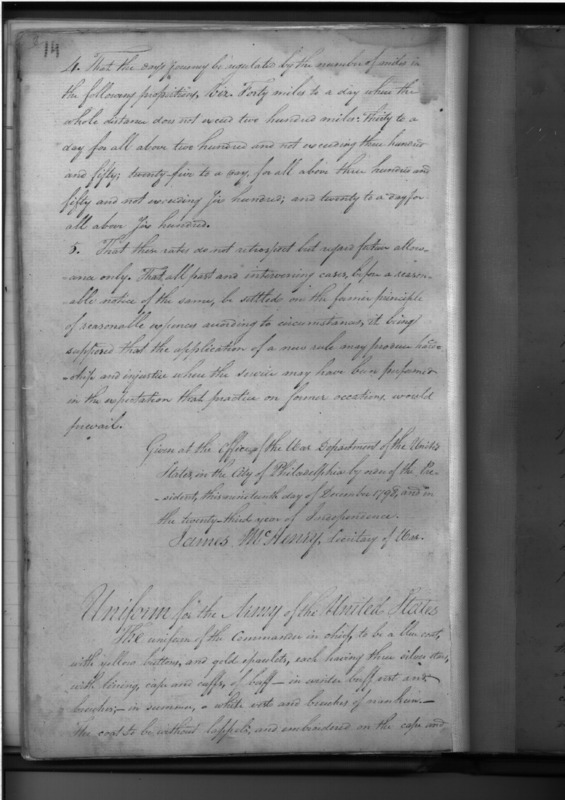 14
4. That the days journey be regulated by the number of miles in
the following proportions, Viz. Forty miles to a day where the
whole distance does not exceed two hundred miles: thirty to a
day for all above two hundred and not exceeding three hundred
and fifty; twenty-five to a day, for all above three hundred and
fifty and not exceeding Six hundred; and twenty to a day for
all above Six hundred.
5. That these rates do not retrospect but regard future allow-
-ance only. That all past and intervening cases, before a reason-
-able notice of the same, be settled on the former principle
of reasonable expences according to circumstances, it being
supposed that the application of a new rule may produce hard-
-ship and injustice where the service may have been performed
in the expectation that practice on former occasions would
prevail.
Given at the Office of the War Department of the United
States, in the City of Philadelphia by order of the Pre-
-sident, this nineteenth day of December 1798, and in
the twenty-third year of Independence.
James McHenry, Secretary of War.
Uniform for the Army of the United States
The uniform of the Commander in chief, to be a blue coat,
with yellow buttons, and gold epaulets, each having three silver stars,
with lining, cape and cuffs, of buff — in winter buff vest and
breeches; — in summer, a white vest and breeches of nankeen. —
The coat to be without lappels, and embroidered on the cape and